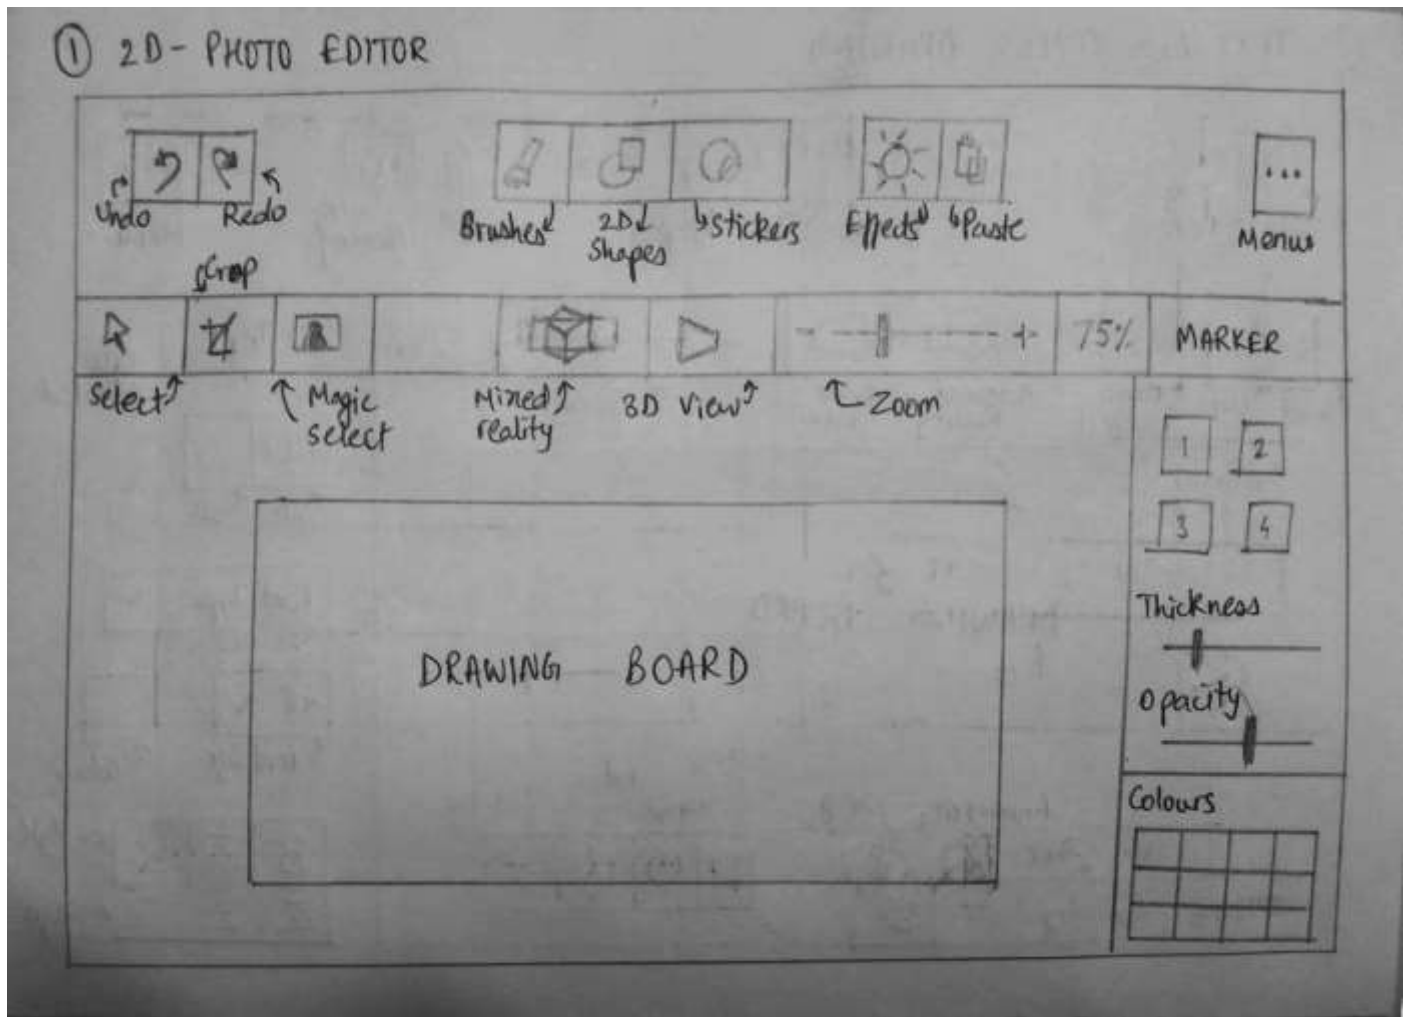 ① 2D - PHOTO EDITOR
Undo Redo Brushes 2D Shapes Stickers Effects Paste Menus
Crop
75% MARKER
Select Magic select Mixed reality 3D View Zoom
1 2
3 4
Thickness
DRAWING BOARD
Opacity
Colours